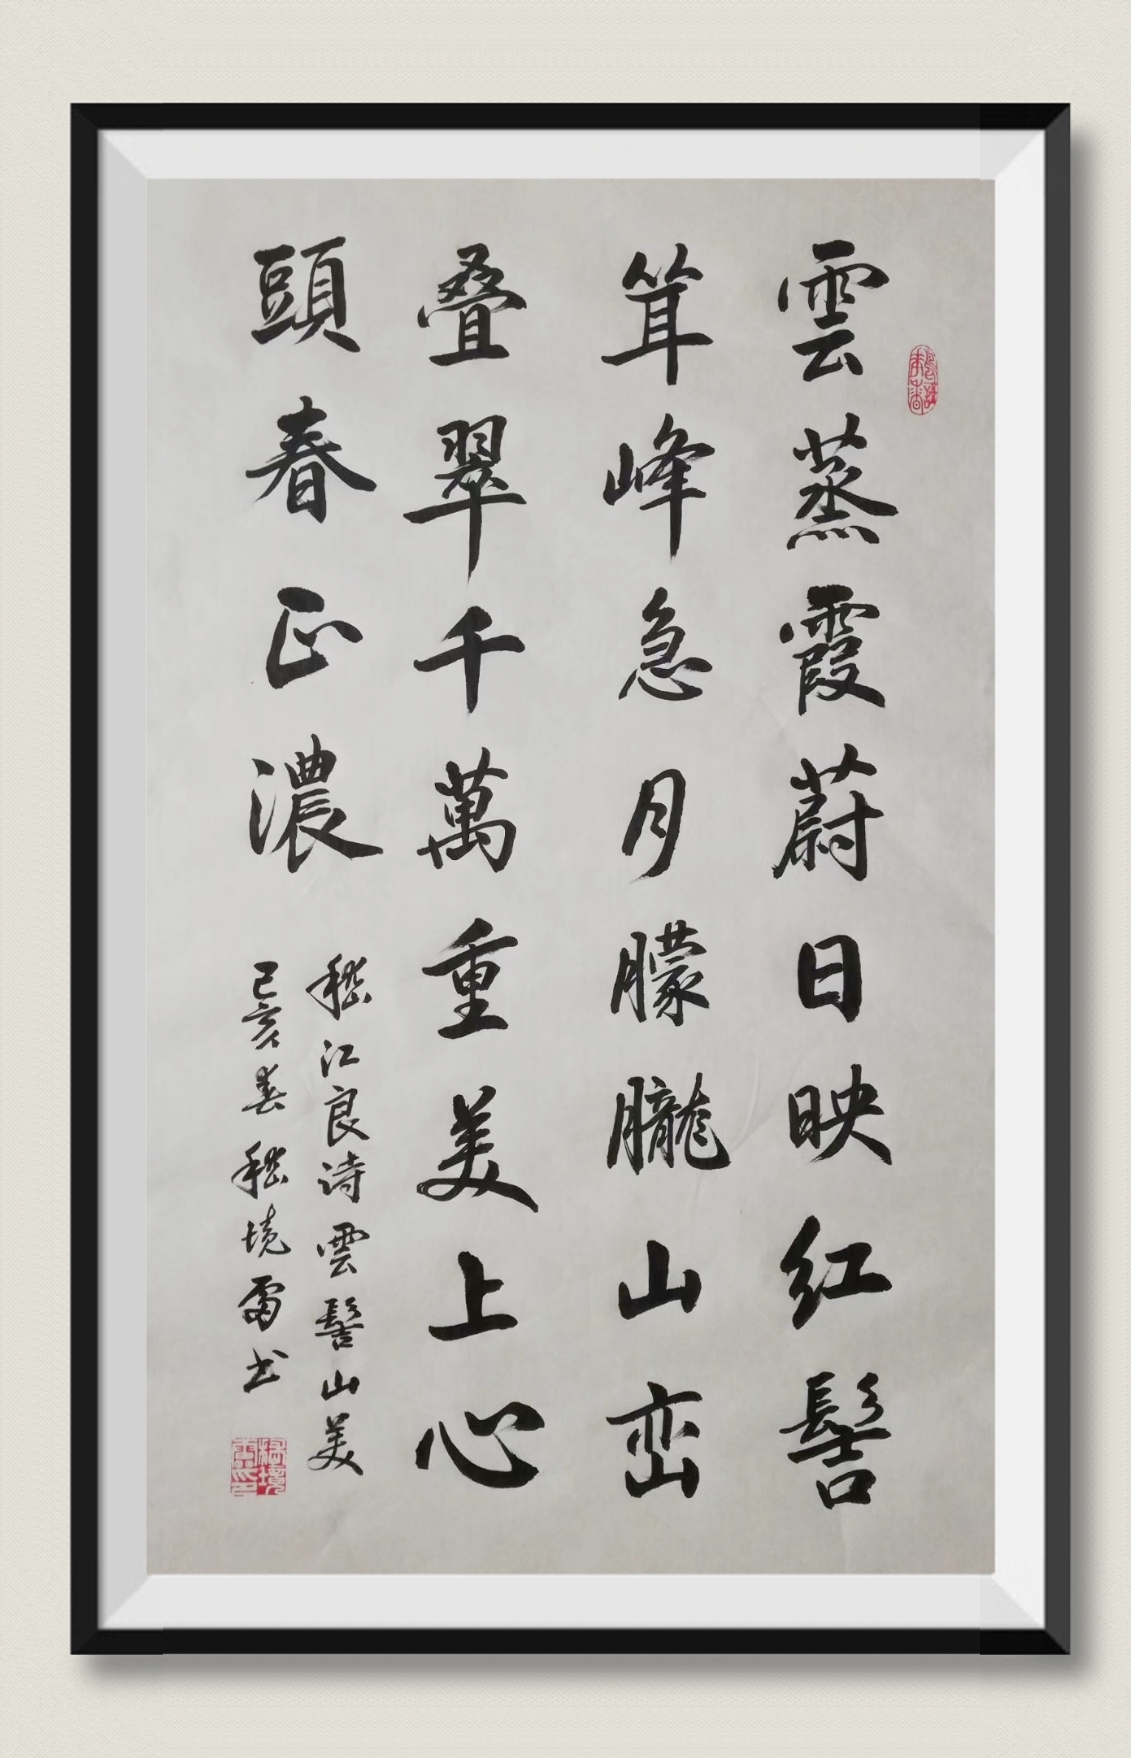 雲蒸霞蔚日映红髻
耸峰急月朦朧山峦
叠翠千萬重美上心
頭春正濃
嵇江良诗雲髻山美
己亥春嵇境雷书